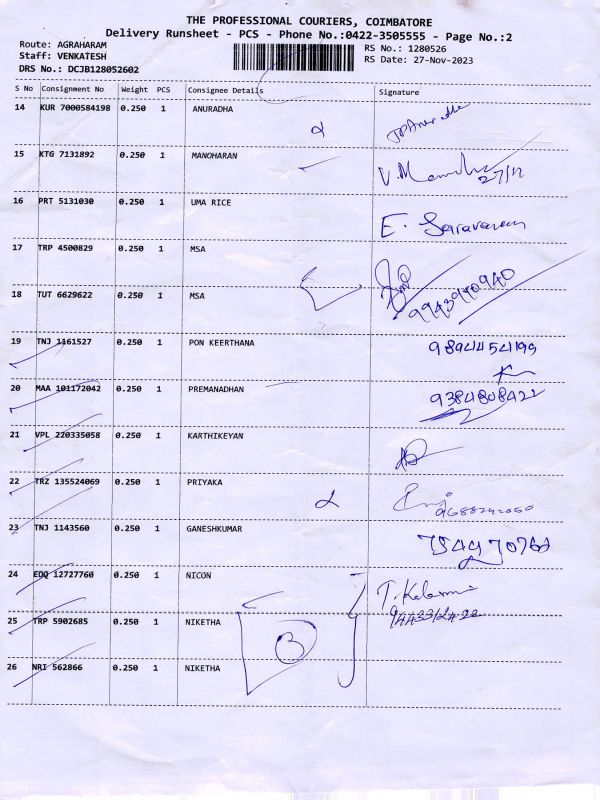 THE PROFESSIONAL COURIERS, COIMBATORE
Delivery Runsheet - PCS - Phone No.:0422-3505555 - Page No.:2
Route: AGRAHARAM RS No.: 1280526
Staff: VENKATESH RS Date: 27-Nov-2023
DRS No.: DCJB128052602
S No Consignment No Weight PCS Consignee Details Signature
14 KUR 7000584198 0.250 1 ANURADHA
15 KTG 7131892 0.250 1 MANOHARAN
27/11
16 PRT 5131030 0.250 1 UMA RICE
E. Saravanan
17 TRP 4500829 0.250 1 MSA
18 TUT 6629622 0.250 1 MSA
9943940940
19 TNJ 1161527 0.250 1 PON KEERTHANA
9894454199
20 MAA 101172042 0.250 1 PREMANADHAN
9384808422
21 VPL 220335058 0.250 1 KARTHIKEYAN
22 TRZ 135524069 0.250 1 PRIYAKA
23 TNJ 1143560 0.250 1 GANESHKUMAR
24 EDQ 12727760 0.250 1 NICON
25 TRP 5902685 0.250 1 NIKETHA
3
26 NRI 562866 0.250 1 NIKETHA